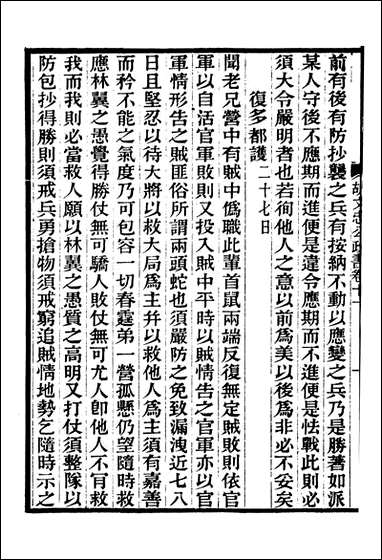 前有後有防抄襲之兵有按納不動以應變之兵乃是勝著如派
某人守後不應期而進便是違令應期而不進便是怯戰此則必
須大令嚴明者也若徇他人之意以前為美以後為非必不妥矣
復多都護二十七日
聞老兄營中有賊中偽職此輩首鼠兩端反復無定賊敗則依官
軍以自活官軍敗則又投入賊中平時以賊情告之官軍亦以官
軍情形告之賊匪俗所謂兩頭蛇也須嚴防之免致漏洩近七八
日且堅忍以待大將以救大局為主并以救他人為主須有嘉善
而矜不能之氣度乃可包容一切春霆弟一營孤懸仍望隨時救
應林翼之愚覺得勝仗無可驕人敗仗無可尤人卽他人不肯救
我而我則必當救人願以林翼之愚質之高明又打仗須整隊以
防包抄得勝則須戒兵勇搶物須戒窮追賊情地勢乞隨時示之
胡文忠公政書卷十一